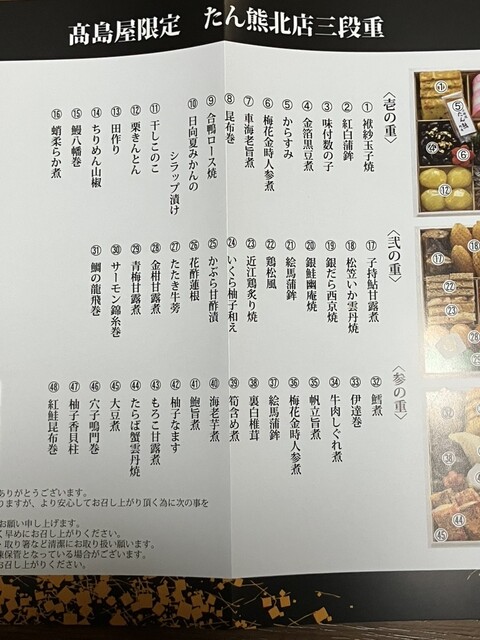 髙島屋限定　たん熊北店三段重
〈壱の重〉
① 袱紗玉子焼
② 紅白蒲鉾
③ 味付数の子
④ 金箔黒豆煮
⑤ からすみ
⑥ 梅花金時人参煮
⑦ 車海老旨煮
⑧ 昆布巻
⑨ 合鴨ロース焼
⑩ 日向夏みかんの
シラップ漬け
⑪ 干しこのこ
⑫ 栗きんとん
⑬ 田作り
⑭ ちりめん山椒
⑮ 鰻八幡巻
⑯ 蛸柔らか煮
〈弐の重〉
⑰ 子持鮎甘露煮
⑱ 松笠いか雲丹焼
⑲ 銀だら西京焼
⑳ 銀鮭幽庵焼
㉑ 絵馬蒲鉾
㉒ 鶏松風
㉓ 近江鶏炙り焼
㉔ いくら柚子和え
㉕ かぶら甘酢漬
㉖ 花酢蓮根
㉗ たたき牛蒡
㉘ 金柑甘露煮
㉙ 青梅甘露煮
㉚ サーモン錦糸巻
㉛ 鯛の龍飛巻
〈参の重〉
㉜ 鱈煮
㉝ 伊達巻
㉞ 牛肉しぐれ煮
㉟ 帆立旨煮
㊱ 梅花金時人参煮
㊲ 絵馬蒲鉾
㊳ 裏白椎茸
㊴ 筍含め煮
㊵ 海老芋煮
㊶ 鮑旨煮
㊷ 柚子なます
㊸ もろこ甘露煮
㊹ たらば蟹雲丹焼
㊺ 大豆煮
㊻ 穴子鳴門巻
㊼ 柚子香貝柱
㊽ 紅鮭昆布巻
ありがとうございます。
りますが、より安心してお召し上がり頂く為に次の事を
お願い申し上げます。
く早めにお召し上がりください。
・取り箸など清潔にお取り扱い願います。
凍保管となっている場合がございます。
お召し上がりください。